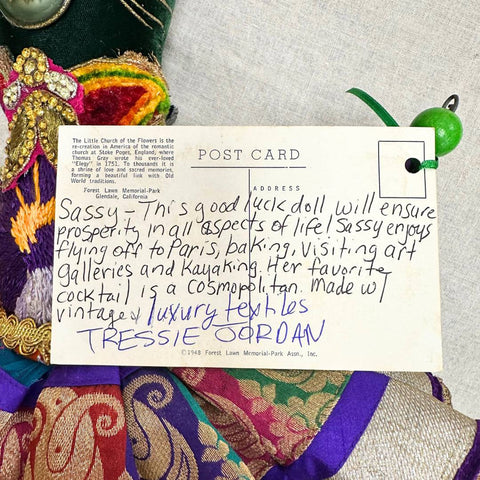 The Little Church of the Flowers is the
re-creation in America of the romantic
church at Stoke Poges, England, where
Thomas Gray wrote his ever-loved
"Elegy" in 1751. To thousands it is
a shrine of love and sacred memories,
forming a beautiful link with Old
World traditions.
Forest Lawn Memorial-Park
Glendale, California
POST CARD
ADDRESS
Sassy - This good luck doll will ensure
prosperity in all aspects of life! Sassy enjoys
flying off to Paris, baking, visiting art
galleries and Kayaking. Her favorite
cocktail is a cosmopolitan. Made w/
vintage & luxury textiles
TRESSIE JORDAN
©1948 Forest Lawn Memorial-Park Assn., Inc.